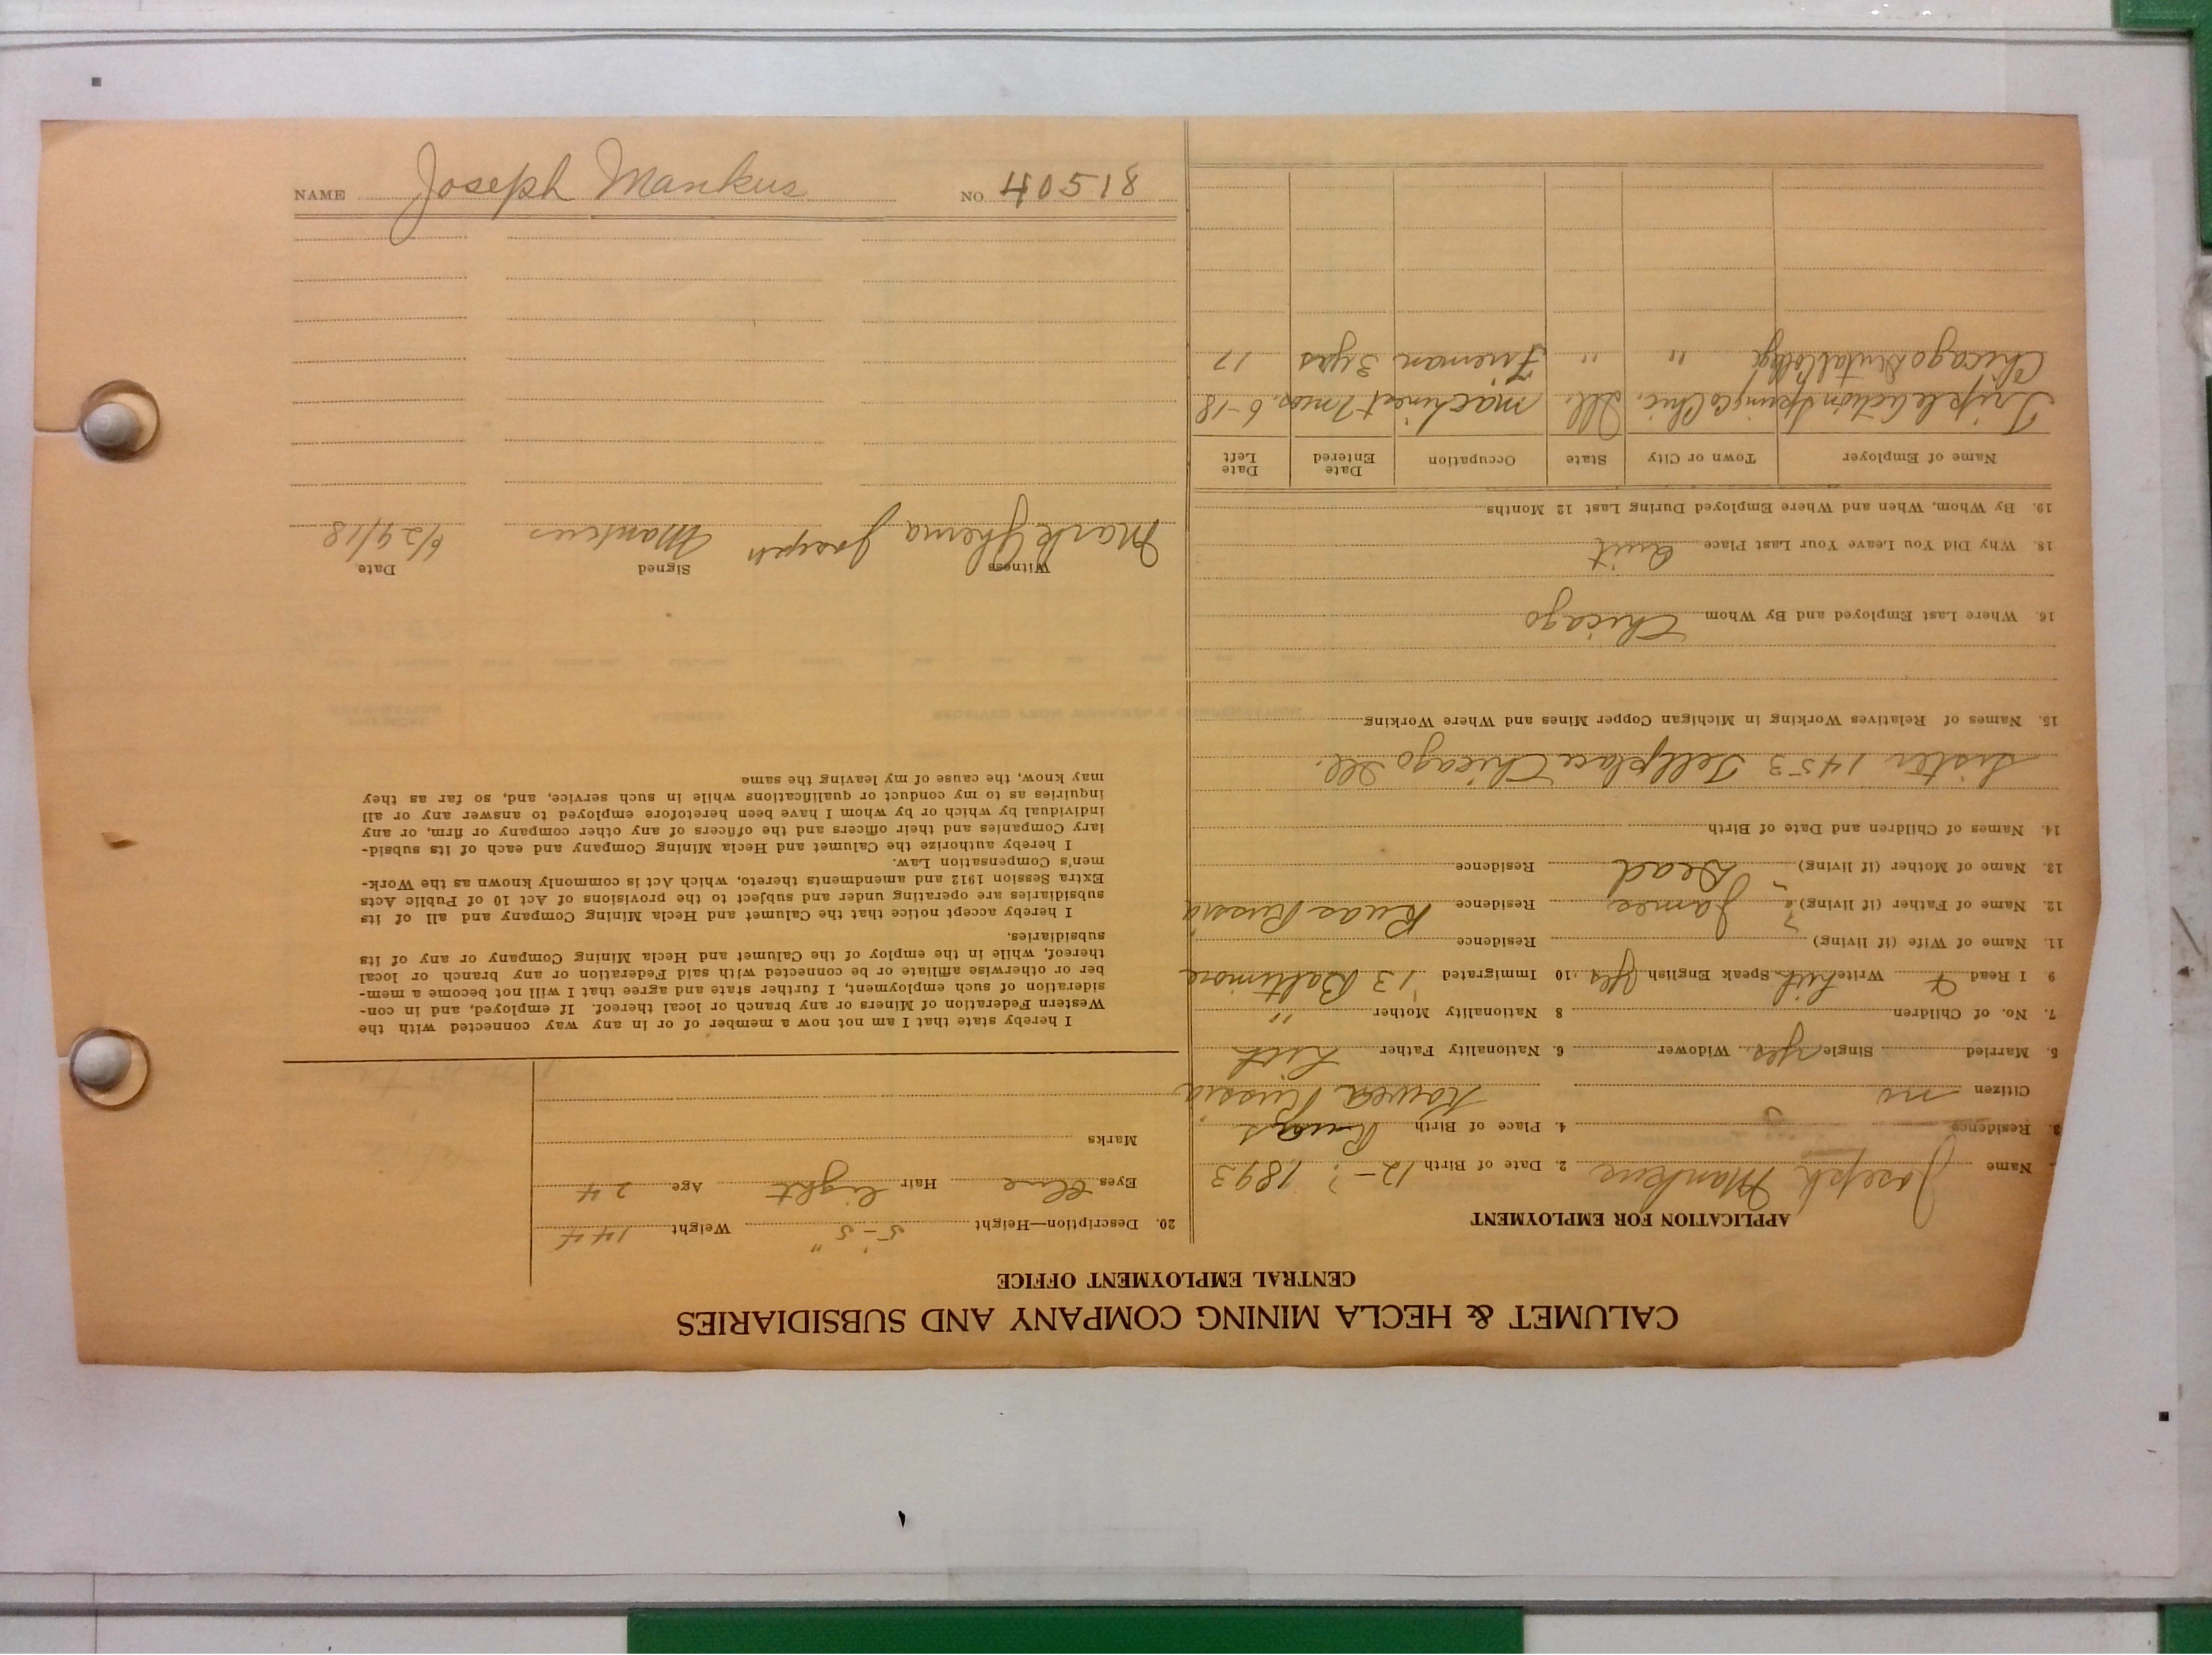 CALUMET & HECLA MINING COMPANY AND SUBSIDIARIES
CENTRAL EMPLOYMENT OFFICE
APPLICATION FOR EMPLOYMENT
Name Joseph Mankus 2. Date of Birth 12-? 1893
3. Residence 4. Place of Birth
Citizen no Russia
5. Married Single yes Widower 6. Nationality Father Lith
7. No. of Children 8 Nationality Mother "
9 I Read Write Lith Speak English yes 10 Immigrated '13 Baltimore
11. Name of Wife (if living) Residence
12. Name of Father (if living) James Residence Russia
13. Name of Mother (if living) Dead Residence
14. Names of Children and Date of Birth
Sister 1453 Tellplace Chicago Ill.
15. Names of Relatives Working in Michigan Copper Mines and Where Working
16. Where Last Employed and By Whom Chicago
18. Why Did You Leave Your Last Place Quit
19. By Whom, When and Where Employed During Last 12 Months
Name of Employer Town or City State Occupation Date Entered Date Left
Triple Action Spring Co Chic. Ill. machinest 7 mos. 6-18
Chicago Dental College " " Fireman 3 yrs 17
20. Description—Height 5'-5" Weight 144
Eyes Blue Hair light Age 24
Marks
I hereby state that I am not now a member of or in any way connected with the
Western Federation of Miners or any branch or local thereof. If employed, and in con-
sideration of such employment, I further state and agree that I will not become a mem-
ber or otherwise affiliate or be connected with said Federation or any branch or local
thereof, while in the employ of the Calumet and Hecla Mining Company or any of its
subsidiaries.
I hereby accept notice that the Calumet and Hecla Mining Company and all of its
subsidiaries are operating under and subject to the provisions of Act 10 of Public Acts
Extra Session 1912 and amendments thereto, which Act is commonly known as the Work-
men's Compensation Law.
I hereby authorize the Calumet and Hecla Mining Company and each of its subsid-
iary Companies and their officers and the officers of any other company or firm, or any
individual by which or by whom I have been heretofore employed to answer any or all
inquiries as to my conduct or qualifications while in such service, and, so far as they
may know, the cause of my leaving the same
Witness Signed Date
Mark Joseph Mankus 6/29/18
NAME Joseph Mankus NO. 40518